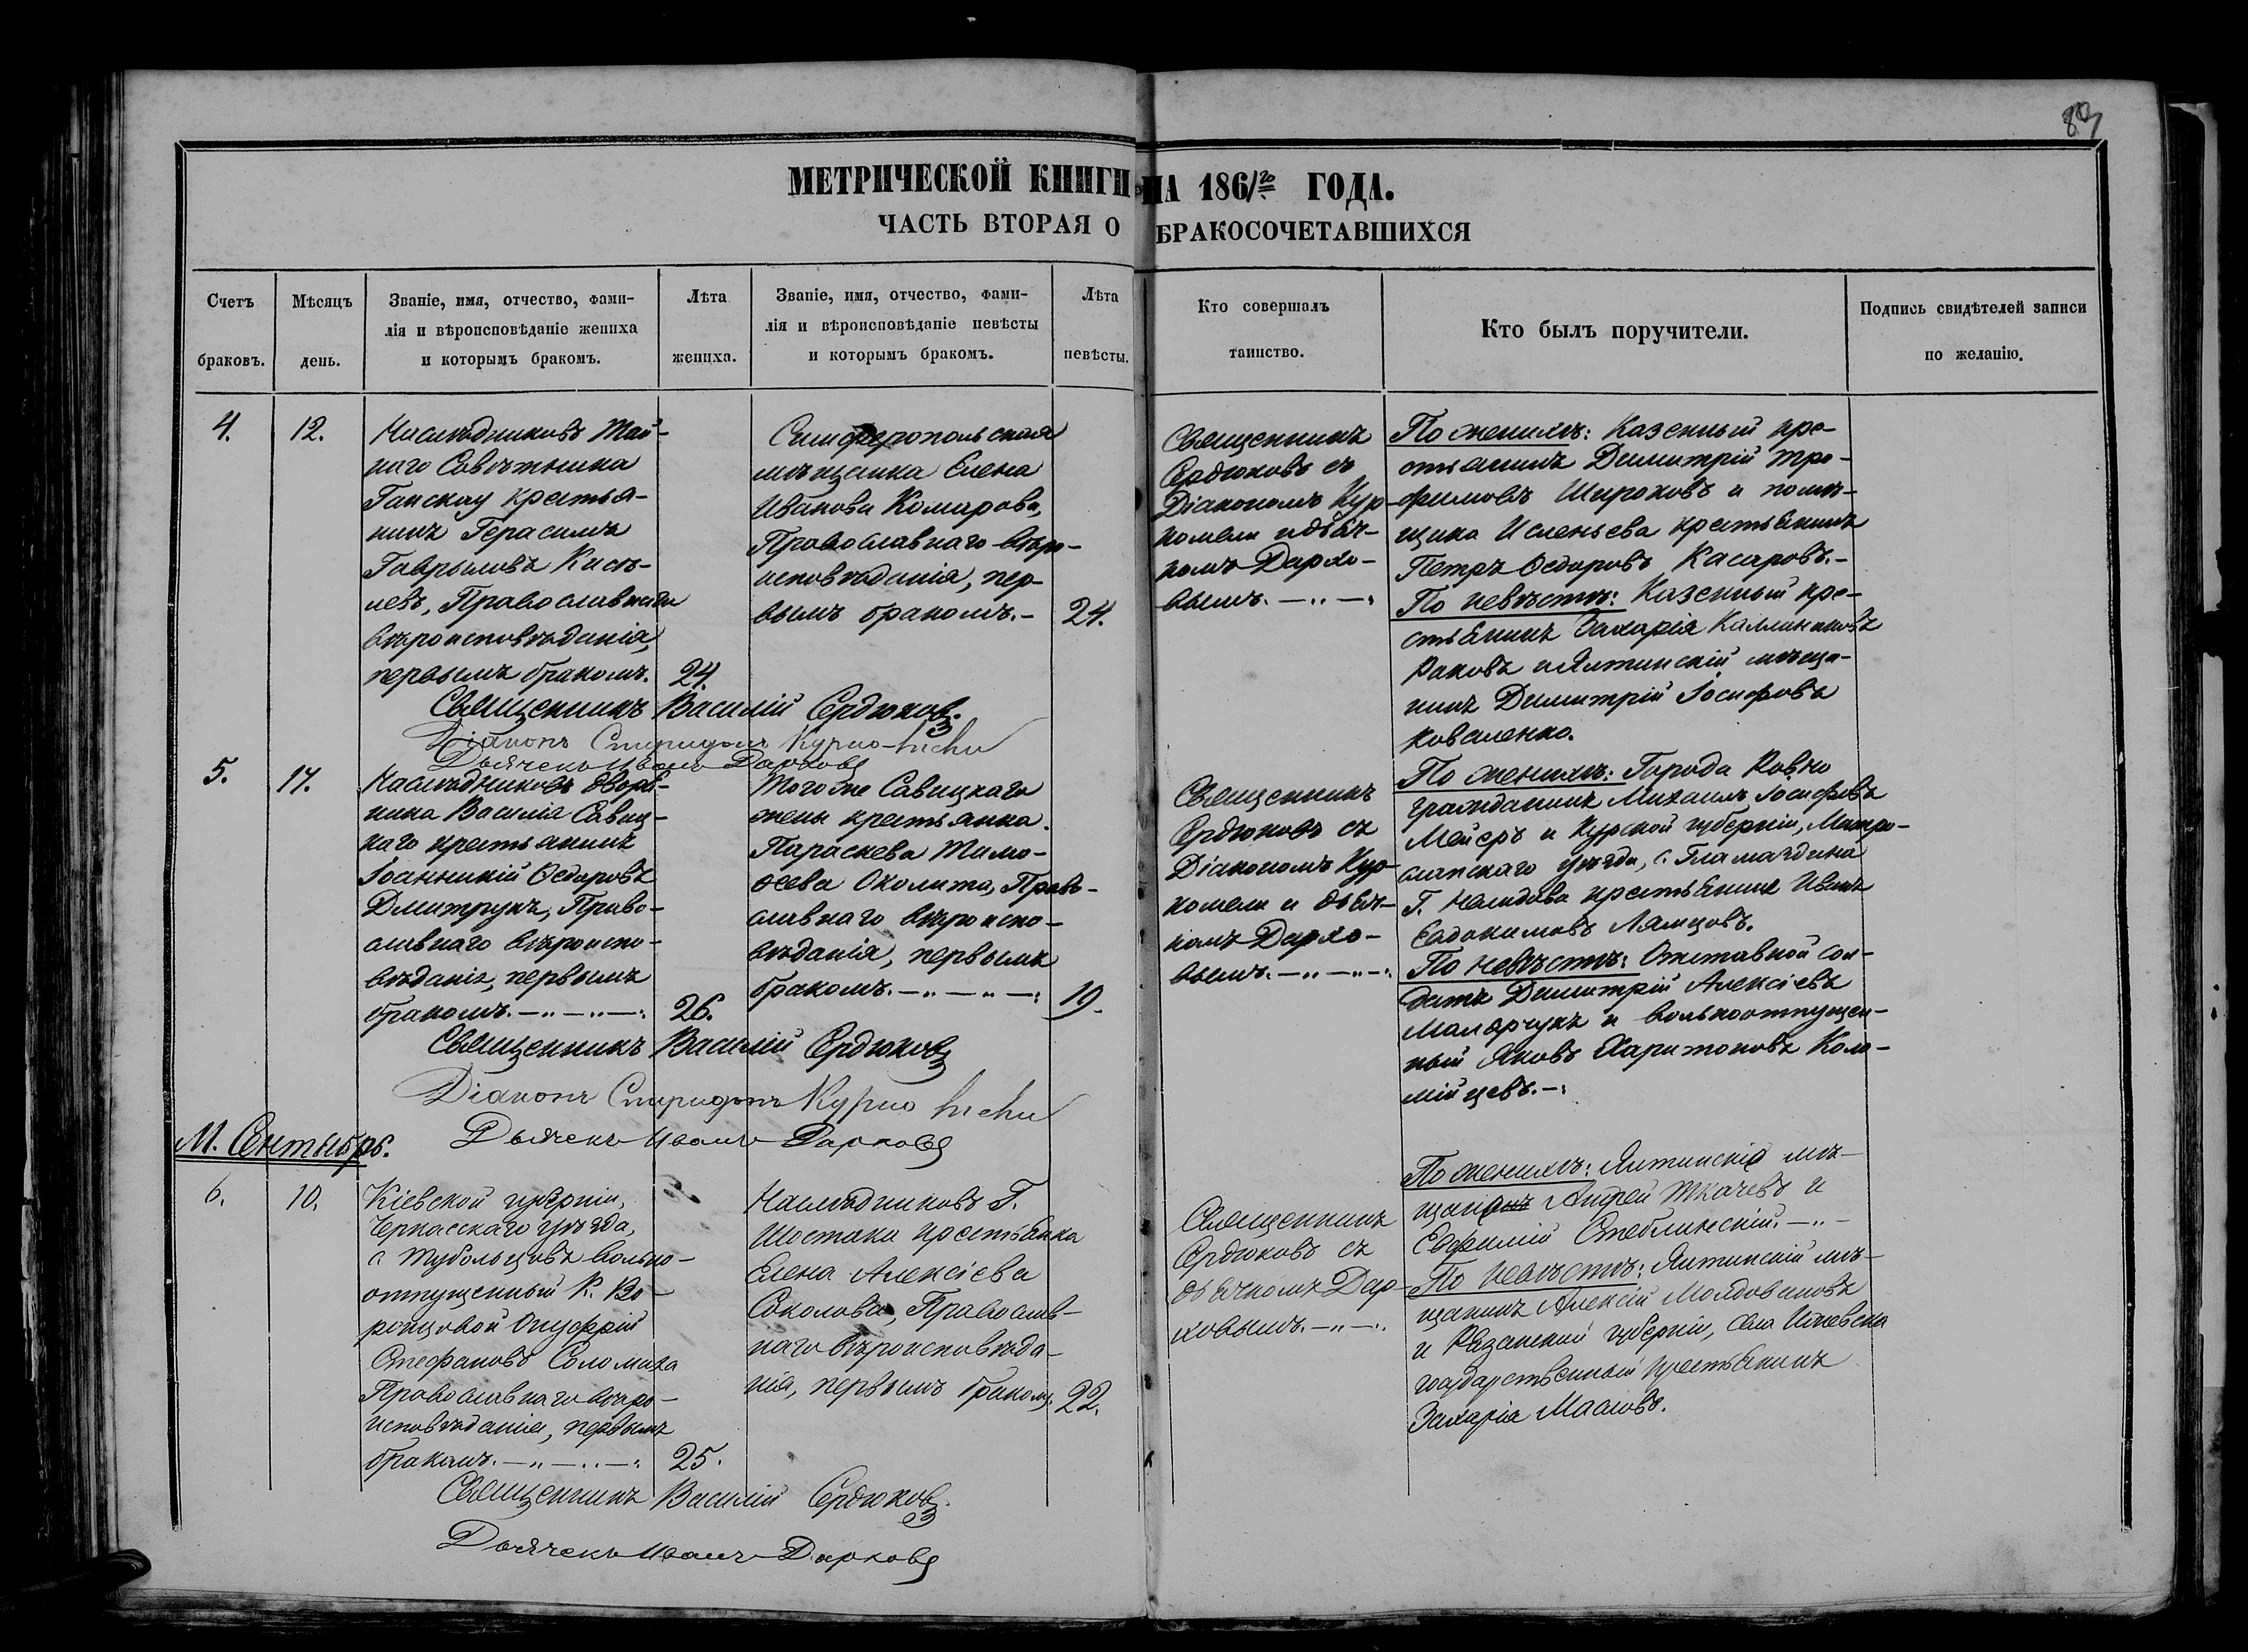 83
МЕТРИЧЕСКОЙ КНИГИ НА 1861го ГОДА.
ЧАСТЬ ВТОРАЯ О БРАКОСОЧЕТАВШИХСЯ
Счетъ
браковъ.
Мѣсяцъ
день.
Званіе, имя, отчество, фами-
лія и вѣроисповѣданіе жениха
и которымъ бракомъ.
Лѣта
жениха.
Званіе, имя, отчество, фами-
лія и вѣроисповѣданіе невѣсты
и которымъ бракомъ.
Лѣта
невѣсты.
Кто совершалъ
таинство.
Кто былъ поручители.
Подпись свидѣтелей записи
по желанію.
4.
12.
Наслѣдниковъ Тай-
наго Совѣтника
крестья-
нинъ Герасимъ
Гаврыловъ Кисѣ-
левъ, Православнаго
вѣроисповѣданія,
первымъ бракомъ.
24.
Симферопольская
мѣщанка Елена
Иванова Комарова,
Православнаго вѣро-
исповѣданія, пер-
вымъ бракомъ.-
24.
Священникъ
Сердюковъ съ
Діакономъ Кур-
комели и дьяч-
комъ Дарко-
вымъ.
По женихѣ: Казенный кре-
стьянинъ Димитрій Тро-
фимовъ Широковъ и помѣ-
щика Исленьева крестьянинъ
Петръ Ѳедоровъ Касаровъ.-
По невѣстѣ: Казенный кре-
стьянинъ Захарія
Раковъ и Ялтинскій мѣща-
нинъ Димитрій Іосифовъ
Коваленко.
Священникъ Василій Сердюковъ.
Діаконъ Спиридонъ
Дьячекъ Иванъ Дарковъ
5.
17.
Наслѣдниковъ дворя-
нина Василія Савиц-
каго крестьянинъ
Іоанникій Ѳедоровъ
Дмитрукъ, Право-
славнаго вѣроиспо-
вѣданія, первымъ
бракомъ.
26.
Того же Савицкаго
жены крестьянка
Параскева Тимо-
ѳеева Околита, Право-
славнаго вѣроиспо-
вѣданія, первымъ
бракомъ.
19.
Священникъ
Сердюковъ съ
Діакономъ Кур-
комели и дьяч-
комъ Дарко-
вымъ.
По женихѣ: Города Ковно
гражданинъ Михаилъ Іосифовъ
Мейеръ и Курской губерніи,
уѣзда, с.
Г. Нелидова крестьянинъ Иванъ
Евдокимовъ Лямцовъ.
По невѣстѣ: Отставной сол-
датъ Димитрій Алексіевъ
Маларчукъ и вольноотпущен-
ный Яковъ Харитоновъ Коло-
мійцевъ.
Священникъ Василій Сердюковъ
Діаконъ Спиридонъ
Дьячекъ Иванъ Дарковъ
М. Сентябрь.
6.
10.
Кіевской губерніи,
Черкасскаго уѣзда,
с. Тубольцовъ вольно-
отпущенный К. Во-
ронцовой Онуфрій
Стефановъ Соломаха
Православнаго вѣро-
исповѣданія, первымъ
бракомъ.
25.
Наслѣдниковъ Г.
Шостака крестьянка
Елена Алексіева
Соколова, Православ-
наго вѣроисповѣда-
нія, первымъ бракомъ.
22.
Священникъ
Сердюковъ съ
дьячкомъ Дар-
ковымъ.
По женихѣ: Ялтинскіе мѣ-
щане Андрей Ткачевъ и
Евфимій Стеблинскій.
По невѣстѣ: Ялтинскій мѣ-
щанинъ Алексій Молдовановъ
и Рязанской губерніи, села
государственный крестьянинъ
Захарія Масловъ.
Священникъ Василій Сердюковъ.
Дьячекъ Иванъ Дарковъ